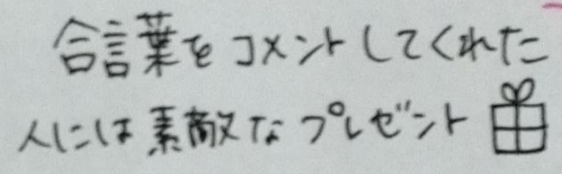 合言葉をコメントしてくれた
人には素敵なプレゼント